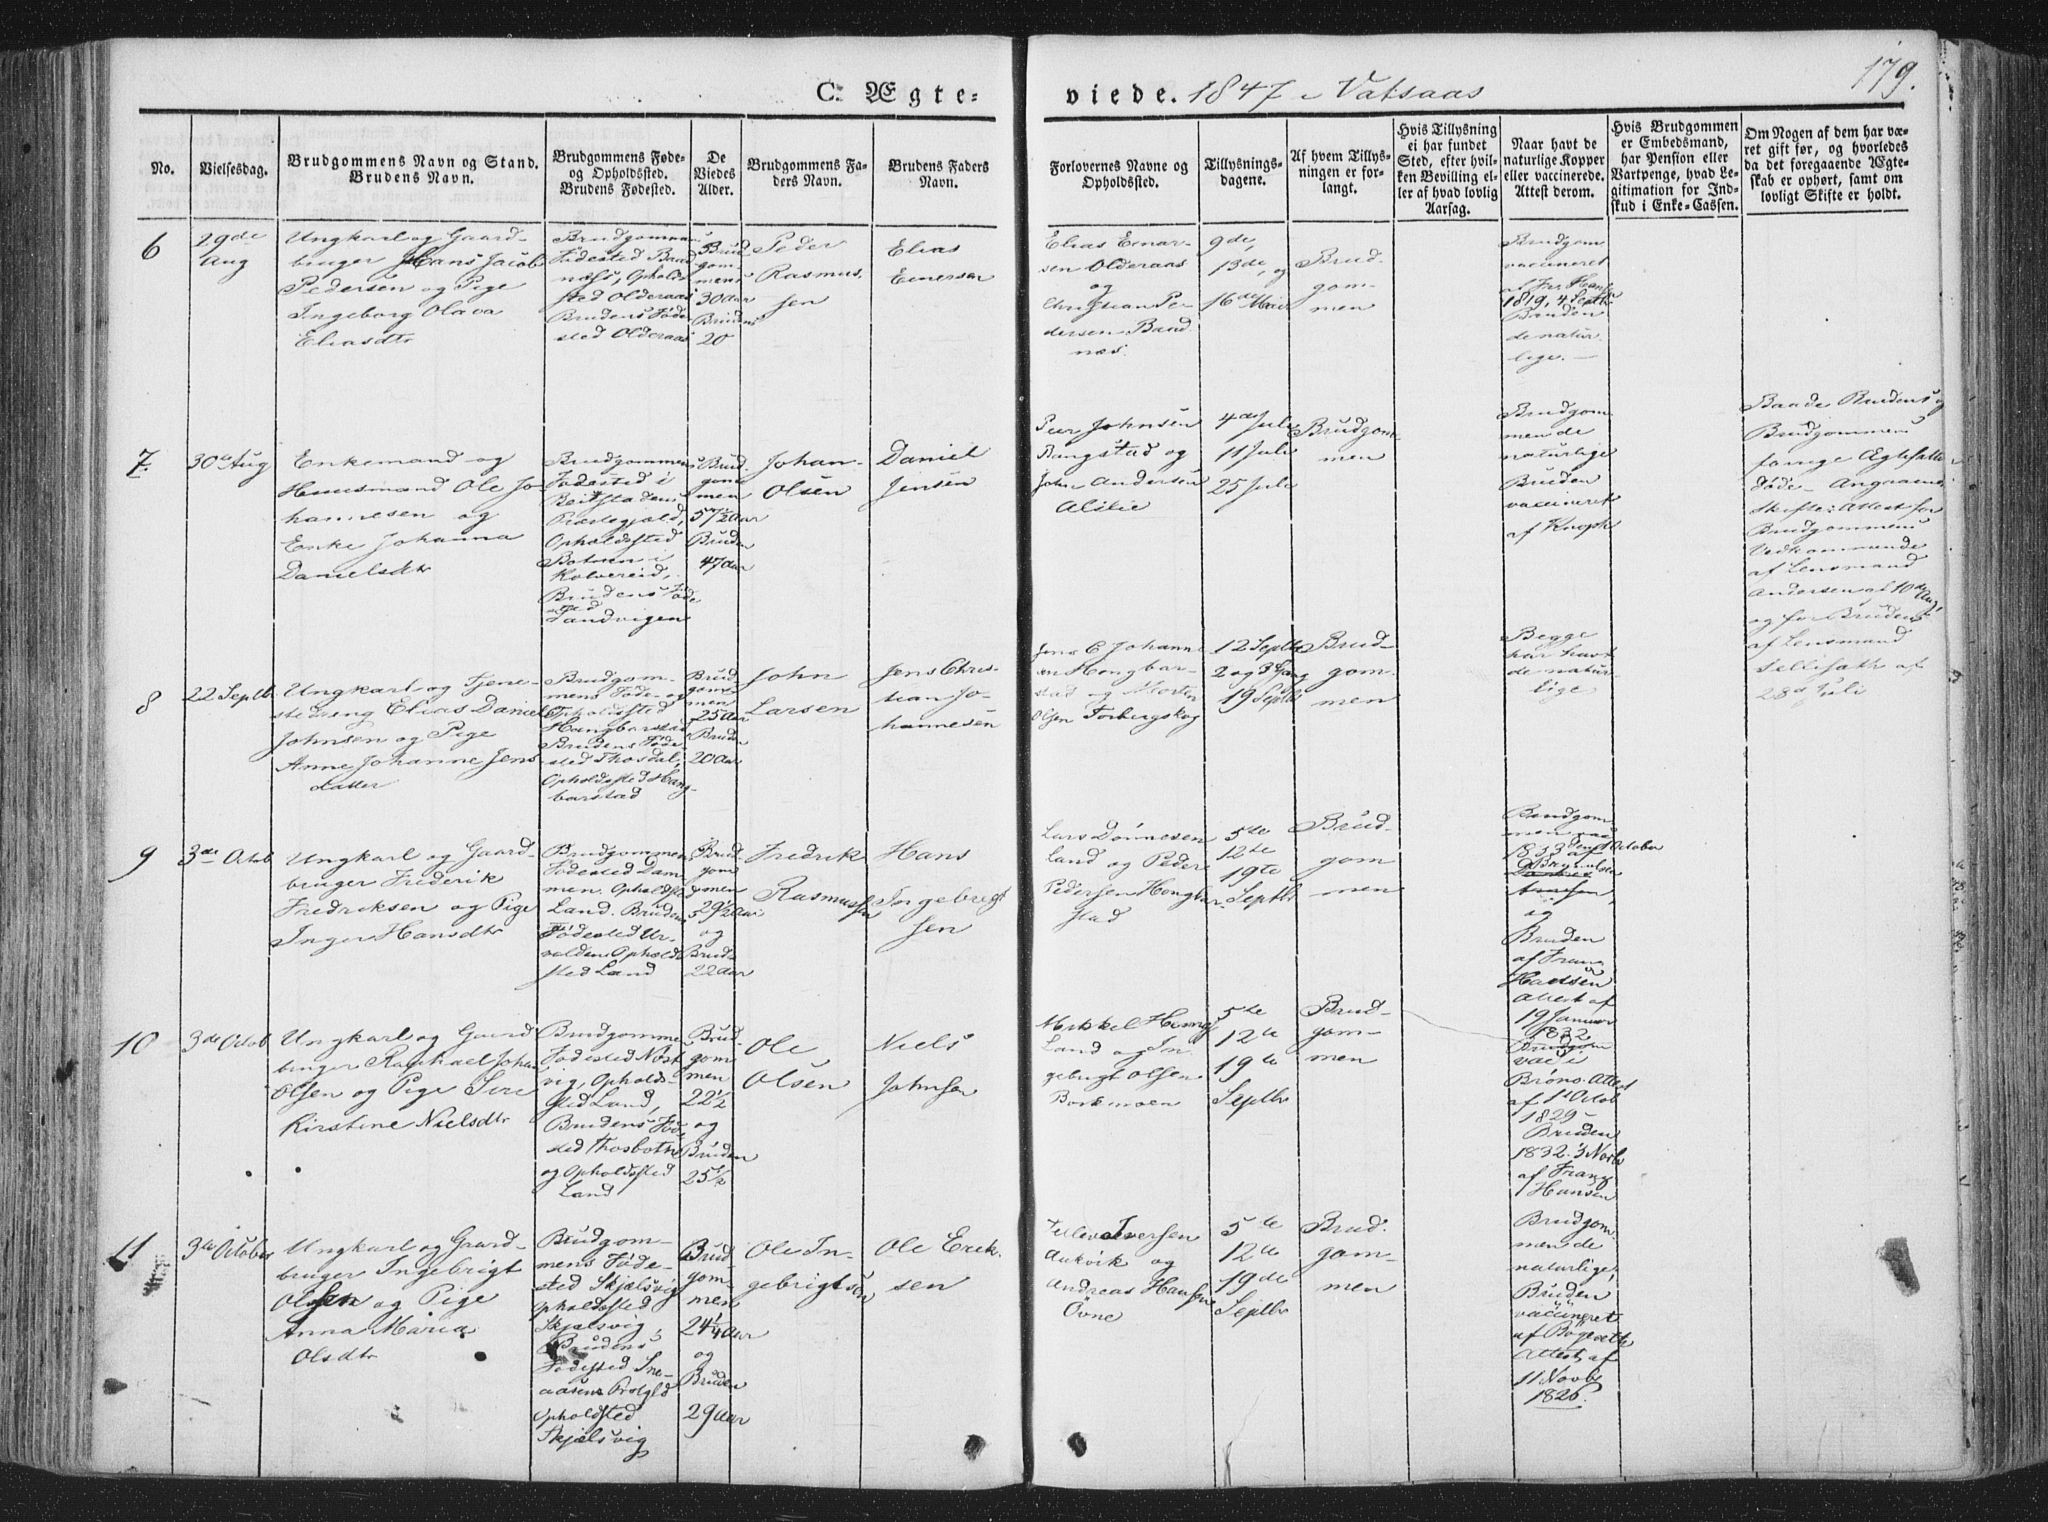 179.
C. Ægte-
viede. 1847 i Vatsaas
No.
Vielsesdag.
Brudgommens Navn og Stand.
Brudens Navn.
Brudgommens Føde-
og Opholdssted.
Brudens Fødested.
De
Viedes
Alder.
Brudgommens Fa-
ders Navn.
Brudens Faders
Navn.
Forlovernes Navne og
Opholdssted.
Tillysnings-
dagene.
Af hvem Tillys-
ningen er for-
langt.
Hvis Tillysning
ei har fundet
Sted, efter hvil-
ken Bevilling el-
ler af hvad lovlig
Aarsag.
Naar havt de
naturlige Kopper
eller vaccinerede.
Attest derom.
Hvis Brudgommen
er Embedsmand,
har Pension eller
Vartpenge, hvad Le-
gitimation for Ind-
skud i Enke-Cassen.
Om Nogen af dem har væ-
ret gift før, og hvorledes
da det foregaaende Ægte-
skab er ophørt, samt om
lovligt Skifte er holdt.
6
29de
Aug
Ungkarl og Gaard-
bruger Hans Jacob
Pedersen og Pige
Ingeborg Olava
Eliasdtr
Brudgommens
Fødested Baad
næss, Opholds
sted Olderaas
Brudens Føde
sted Olderaas
Brud
gom-
mens
30 Aar
Brudens
20
Peder
Rasmus
sen
Elias
Einersen
Elias Einar-
sen Olderaas
og
Christian Pe
dersen Baad
næs.
9de,
13de, og
16de Mai
Brud-
gom-
men
Brudgom
vaccineret
af Fr. Hansen
1819. 4 Septbr
Bruden
de natur
lige. —
7.
30te Aug
Enkemand og
Huusmand Ole Jo-
hannesen og
Enke Johanna
Danielsdtr
Brudgommens
Fødested i
Beitstadens
Præstegjæld,
Opholdssted
Botnen i
Kolvereid,
Brudens Føde
sted
Sandvigen
Brud-
gom
men
57½ Aar
Bruden
47 Aar
Johan-
Olsen
Daniel
Jensen
Peer Johnsen
Rangstad og
John Andersen
Alslie
4de Juli
11 Juli
25 Juli
Brudgom-
men
Brudgom
men de
naturlige
Bruden
vaccineret
af Knoph
Baade Brudens og
Brudgommens
forrige Ægtefælle
døde- Angaaende
Skifte: Attest for
Brudgommens
Vedkommende
af Lensmand
Andersen af 10de Aug.
og for Brudens
af Lensmand
Sellisæth af
28de Juli
8
22 Septb
Ungkarl og Tjene-
stedreng Elias Daniel
Johnsen og Pige
Anne Johanne Jens
datter
Brudgom-
mens Føde- og
Opholdssted
Hongbarstad
Brudens Føde
sted Thosdal,
Opholdssted Hong-
barstad
Brud
gom-
men
25 Aar
Bruden
20 Aar
John
Larsen
Jens Chris-
tian Jo-
hannesen
Jens C Johann
sen Hongbar-
stad og Morten
Olsen Forbergskog
12 Septbr
2 og 3 Gang
19 Septbr
Brud-
gom-
men
Begge
har havt
de natur
lige
9
3de Octob
Ungkarl og Gaard-
bruger Frederik
Fredriksen og Pige
Inger Hansdtr
Brudgommen
Fødested Dam
men. Opholdsst
Land. Brudens
Fødested Ur-
valden Opholds
sted Land
Brud-
gom
men
29½ Aar
og
Brud-
22 Aar
Fredrik
Rasmussen
Hans
Ingebrigt
sen
Lars Dønnesen
Land og Peder
Pedersen Hongbar-
stad
5te
12te
19te
Septbr
Brud-
gom
men
Brudgom
men vac
1833 den 1 October
af
og
Bruden
af Franz
Hansen
Attest af
19 Januar
1832
10
3de Octob
Ungkarl og Gaard
bruger Raphael Johan
Olsen og Pige Sire
Kirstine Nielsdtr
Brudgommen
Fødested Nost
vig, Opholds-
sted Land,
Brudens Føde
sted Thosbotn
og Opholdssted
Land
Brud-
gom
men
22½
og
Bruden
25½
Ole
Olsen
Niels
Johnsen
Mikkel
Land og In
gebrigt Olsen
Borkmoen
5te
12te
19te
Septbr
Brud-
gom-
men
Brudgom
vac i
Brønø. Attest
af 1 Octob
1829-
Bruden
1832. 3 Novb
af Franz
Hansen
11
3de October
Ungkarl og Gaard-
bruger Ingebrigt
Olsen og Pige
Anna Maria
Olsdtr
Brudgom-
mens Føde-
sted Skjelsvig
Opholdssted
Skjelsvig,
Brudens
Fødested Sne-
aasens Prstgld
Opholdsted
Skjelsvig
Brud
gom-
men
24¼ Aar
og
Bruden
29 Aar
Ole In-
gebrigtsen
Ole Erik-
sen
Tellev Iversen
Aakvik og
Andreas Hansen
Övne
5te
12te
19de
Septbr
Brud.
gom-
men
Brudgom
men de
naturlige,
Bruden
vaccineret
af
Attest af
11 Novb
1826.